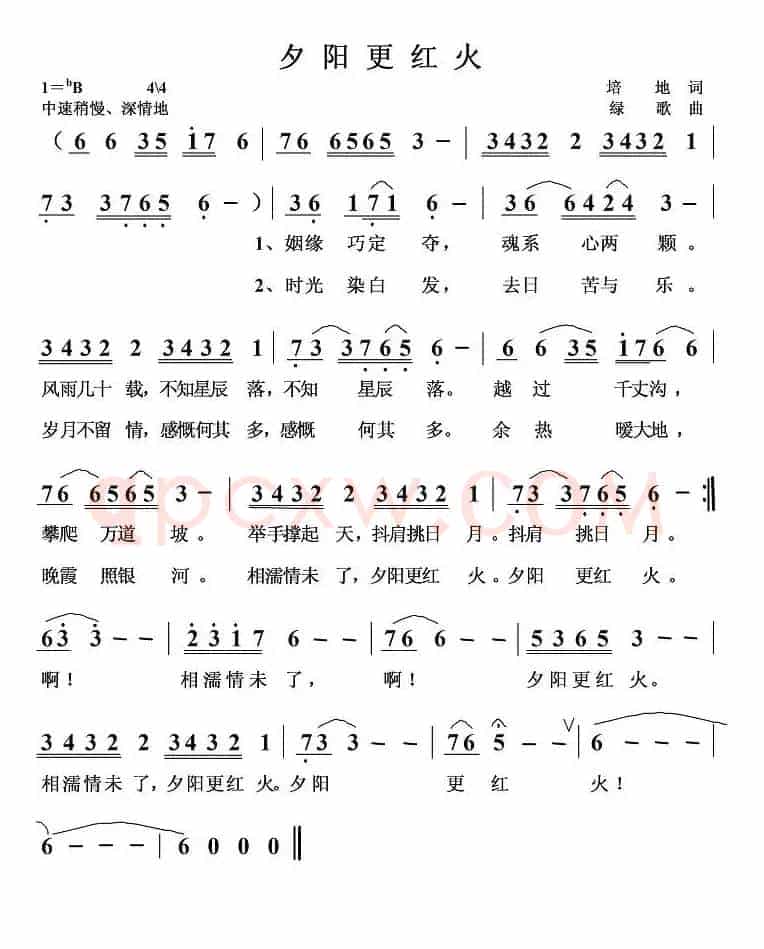 夕阳更红火
1=ᵇB 4\4 培地词
中速稍慢、深情地 绿歌曲
（6 6 35 i76 | 76 6565 3 - | 3432 2 3432 1 |
73 3765 6 - ）| 36 171 6 - | 36 6424 3 - |
1、姻缘 巧定 夺， 魂系 心两 颗。
2、时光 染白 发， 去日 苦与 乐。
3432 2 3432 1 | 73 3765 6 - | 6 6 35 i76 6 |
风雨几十 载，不知星辰 落，不知 星辰 落。 越 过 千丈沟，
岁月不留 情，感慨何其 多，感慨 何其 多。 余 热 暖大地，
76 6565 3 - | 3432 2 3432 1 | 73 3765 6 - :||
qpcxw.COM
攀爬 万道 坡。 举手撑起 天，抖肩挑日 月。抖肩 挑日 月。
晚霞 照银 河。 相濡情未 了，夕阳更红 火。夕阳 更红 火。
63 3 - - | 2317 6 - - | 76 6 - - | 5365 3 - - |
啊！ 相濡情未 了， 啊！ 夕阳更红 火。
3432 2 3432 1 | 73 3 - - | 76 5 - - ∨ | 6 - - -
相濡情未 了，夕阳更红 火。夕阳 更 红 火！
6 - - - | 6 0 0 0 ||